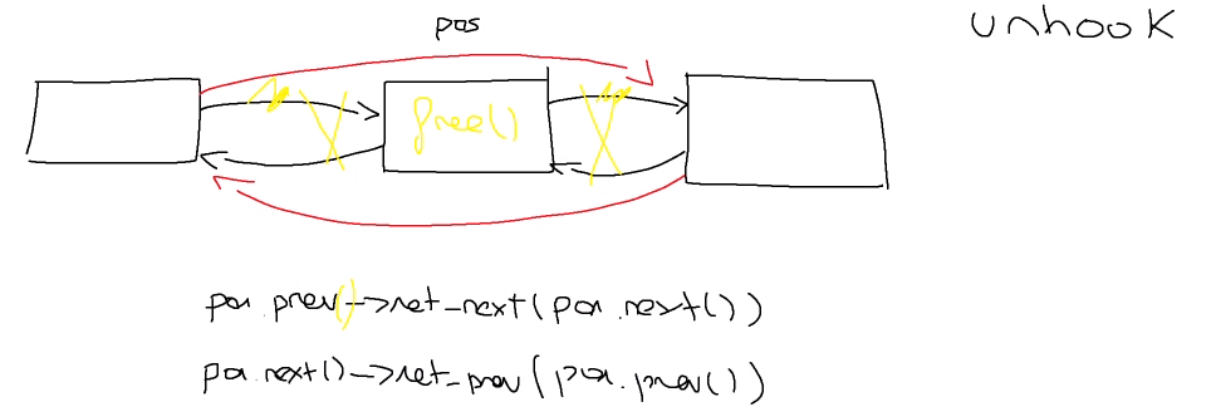 pos
unhook
free()
pos.prev()->set_next(pos.next())
pos.next()->set_prev(pos.prev())